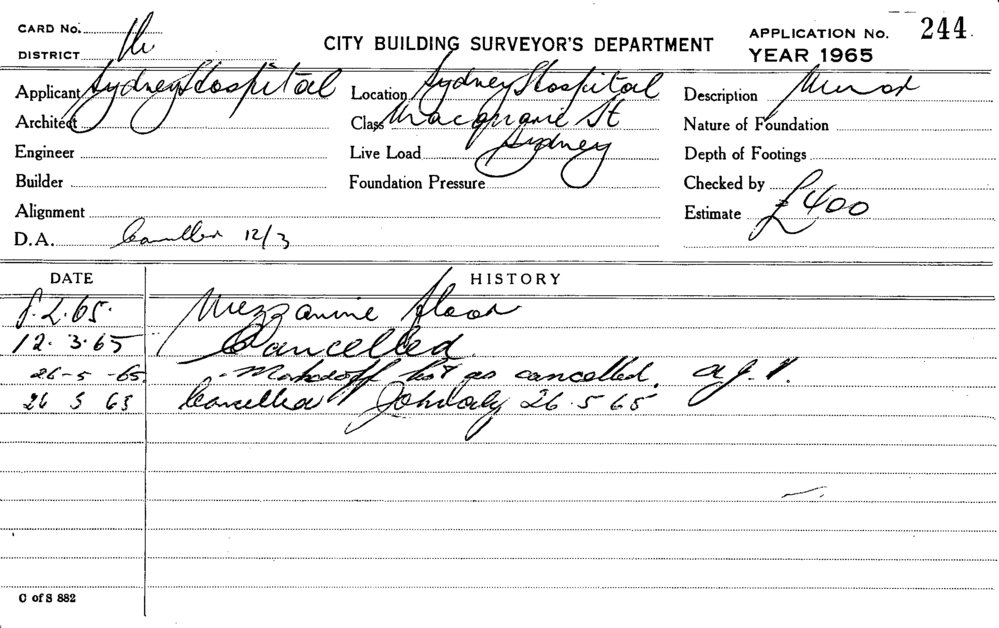 CARD No.
CITY BUILDING SURVEYOR'S DEPARTMENT
APPLICATION No. 244
DISTRICT
YEAR 1965
Applicant Sydney Hospital
Location Sydney Hospital
Description Minor
Architect
Class Macquarie St
Nature of Foundation
Engineer
Live Load Sydney
Depth of Footings
Builder
Foundation Pressure
Checked by
Alignment
Estimate £400
D.A. Cancelled 12/3
DATE HISTORY
8.2.65. Mezzanine floor
12.3.65 Cancelled
26-5-65. as cancelled.
26 5 65 Cancelled 26.5.65
C of S 882